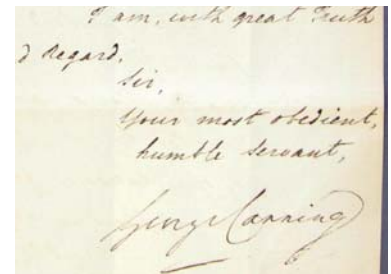 I am, with great Truth
d Regard,
Sir,
Your most obedient,
humble Servant,
George Canning